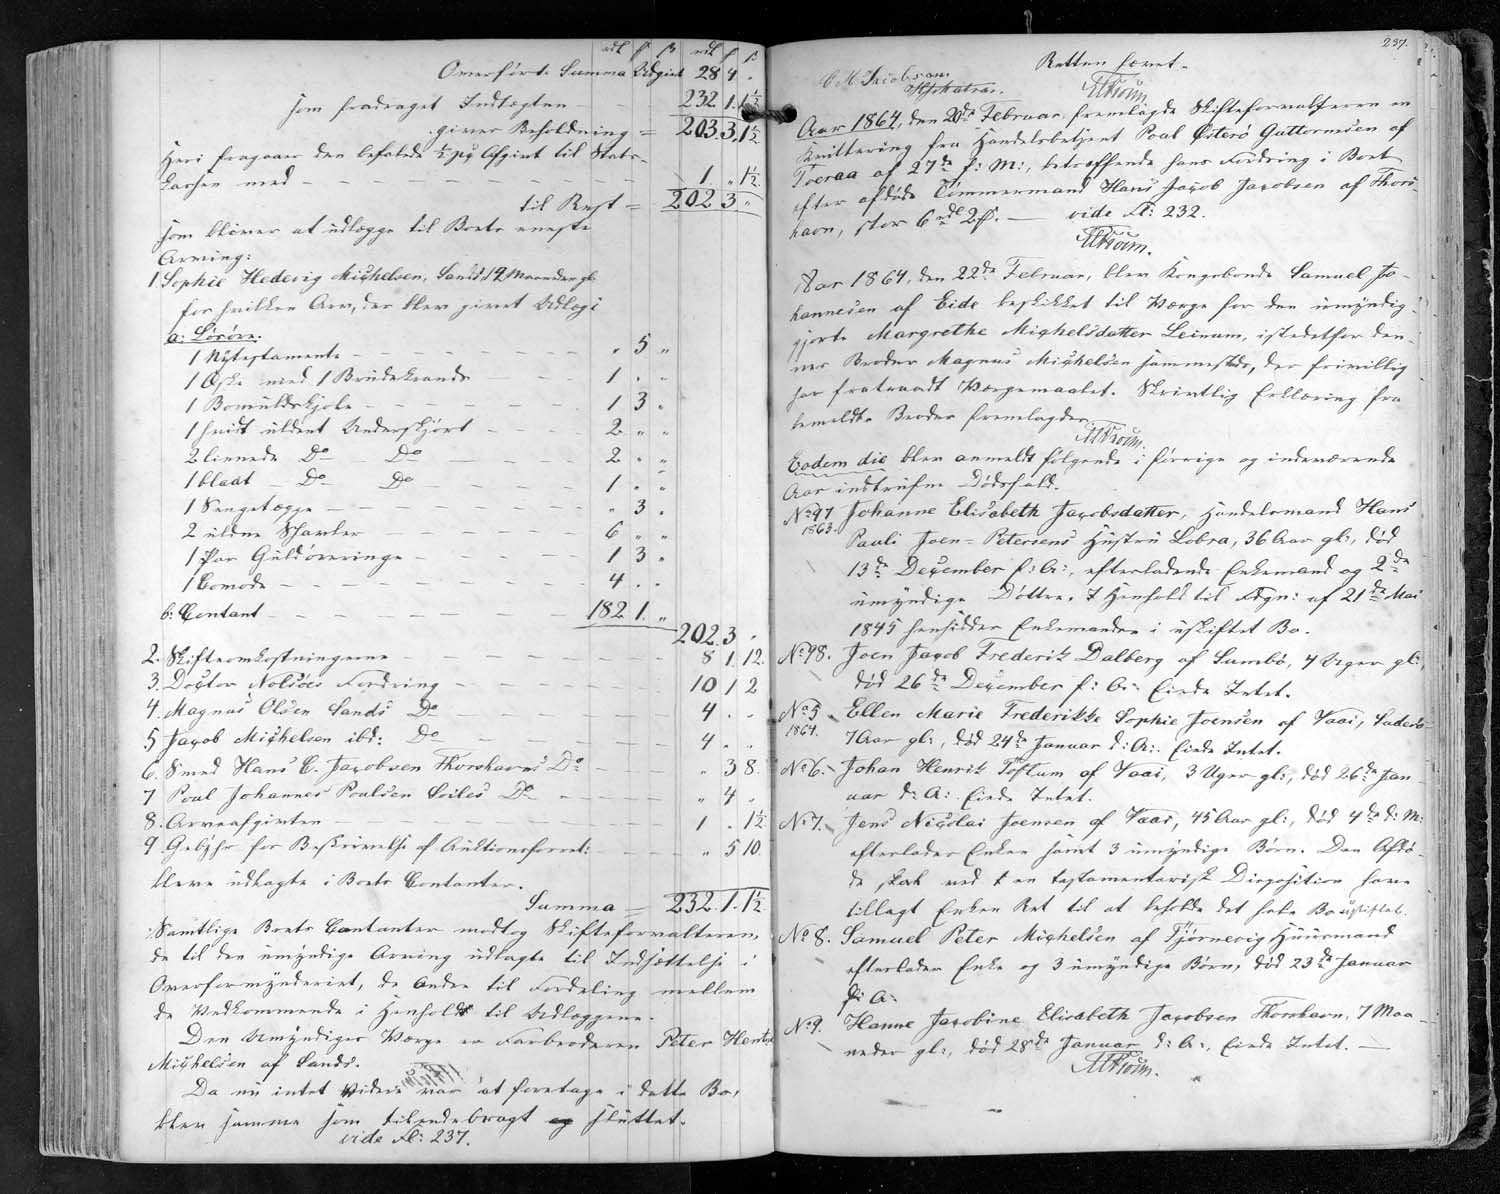 rdl ß rdl ß
Overført Summa Udgivt 28 4 "
som fradraget Indtægten 232 1. 1½
giver Beholdning = 203. 3. 1½
Heri fragaaer den befalede ½ pCt Afgivt til Stats-
kassen med 1. " 1½
til Rest = 202 3 "
som bliver at udlægge til Boets eneste
Arving:
1. Sophie Hedevig Michelsen, Sands 12 Maaneder gl.
for hvilken Arv, der blev givet Udlæg i
a: Løsøre.
1 Nytestamente " 5 "
1 Æske med 1 Brudekrands 1 " "
1 Bomuldskjole 1 3 "
1 hvidt uldent Underskjørt 2 " "
2 linnede Do Do 2 " "
1 blaat Do Do 1 " "
1 Sengetæppe " 3 "
2 uldne Schawler 6 " "
1 Par Guldørenringe 1 3 "
1 Comode 4 " "
b: Contant 182 1. "
202. 3 "
2. Skifteomkostningerne 8 1. 12.
3. Doctor Nolsøes Fordring 10 1 2
4. Magnus Olsen Sands Do 4 " "
5 Jacob Michelsen ibd: Do 4 " "
6. Smed Hans C. Jacobsen Thorshavns Do " 3 8.
7 Poul Johannes Poulsen Do " 4 "
8. Arveafgivten 1 " 1½
9 Gebyhr for Beskrivelse af Auktionsforret: " 5 10.
bleve udlagte i Boets Contanter.
Summa = 232. 1. 1½
Samtlige Boets Contanter modtog Skifteforvalteren,
de til den umyndige Arving udlagte til Indsættelse i
Overformynderiet, de Andre til Fordeling mellem
de Vedkommende i Henhold til Udlæggene.
Den Umyndiges Værge er Farbroderen Peter
Michelsen af Sands.
Da nu intet videre var at foretage i dette Bo,
blev samme som tilendebragt sluttet.
vide Fl: 237.
237.
Retten hævet.
C M Jacobsen
Aar 1864, den Februar fremlagde Skifteforvalteren en
Kvittering fra Handelsbetjent Poul Østerø Guttormsen af
Tveraa af 27de f: M:, betræffende hans Fordring i Boet
efter afdøde Tømmermand Hans Jacob Jacobsen af Thors-
havn, stor 6 rdl 2 ß. — vide Fl: 232.
Aar 1864, den 22de Februar, blev Kongsbonde Samuel Jo-
hannesen af Eide beskikket til Værge for den umyndig-
gjorte Margrethe Michelsdatter Leinum, istedetfor den-
nes Broder Magnus Michelsen sammesteds, der frivillig
har fratraadt Værgemaalet. Skrivtlig Erklæring fra
bemeldte Broder fremlagdes
Eodem die blev anmeldt følgende i forrige og indeværende
Aar indtrufne Dødsfald.
No 97 Johanne Elisabeth Jacobsdatter, Handelsmand Hans
1863. Pauli Joen-Petersens Hustru Lobra, 36 Aar gl:, død
13de December f: A:, efterladende Enkemand og 2de
umyndige Døttre. I Henhold til Frgn: af 21de Mai
1845 hensidder Enkemanden i uskiftet Bo.
No 98. Joen Jacob Frederik Dalberg af Sumbø, 4 Uger gl:,
død 26de December f: A: Eiede Intet.
No 5 Ellen Marie Frederikke Sophie Joensen af Vaai,
1864. 7 Aar gl:, død 24de Januar d: A:. Eiede Intet.
No 6. Johan Henrik Toftum af Vaai, 3 Uger gl:, død 26de Jan-
uar d: A: Eiede Intet.
No 7. Jens Nicolai Joensen af Vaai, 45 Aar gl:, død 4de d: M:
efterlader Enke samt 3 umyndige Børn. Den Afdø-
de skal ved en testamentarisk Disposition have
tillagt Enken Ret til at beholde det hele Bo uskiftet.
No 8. Samuel Peter Michelsen af Tjørnevig Huusmand
efterlader Enke og 3 umyndige Børn, død 23de Januar
A:
No 9. Hanne Jacobine Elisabeth Jacobsen Thorshavn, 7 Maa-
neder gl:, død 28de Januar d: A:, Eiede Intet. —